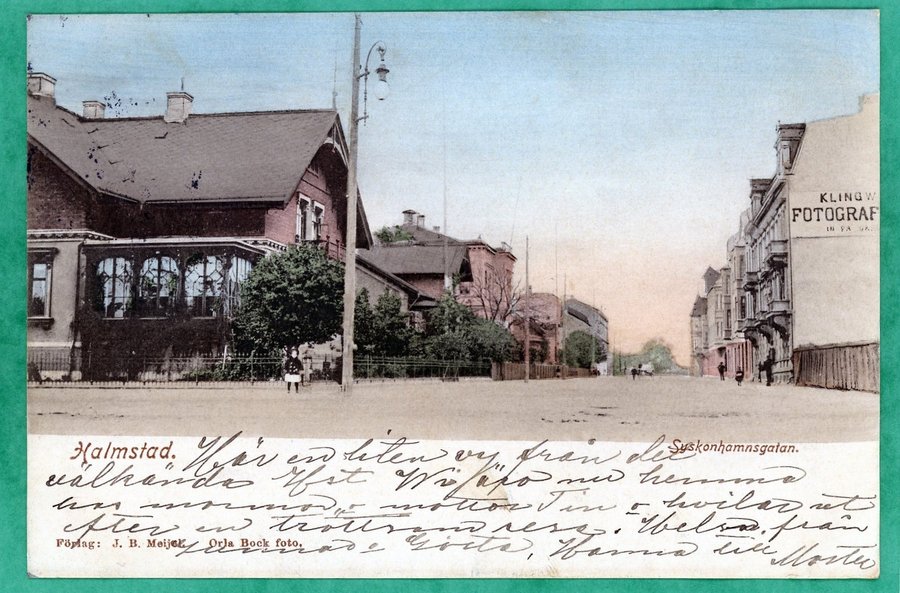 KLINGW
FOTOGRAF
Halmstad.
Syskonhamnsgatan.
Här en liten vy från det
välkända Hst Wi äro nu hemma
hos mormor o moster Tin o hvilar ut
efter en tröttsam resa. Helsa från
Gösta, Hanna till Moster
Förlag: J. B. Meijel. Orla Bock foto.